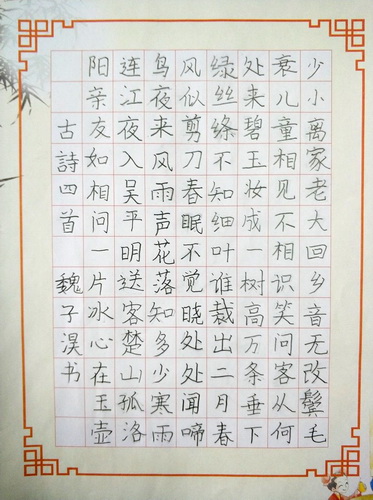 少小离家老大回乡音无改鬓毛
衰儿童相见不相识笑问客从何
处来碧玉妆成一树高万条垂下
绿丝绦不知细叶谁裁出二月春
风似剪刀春眠不觉晓处处闻啼
鸟夜来风雨声花落知多少寒雨
连江夜入吴平明送客楚山孤洛
阳亲友如相问一片冰心在玉壶
古詩四首 魏子淏书